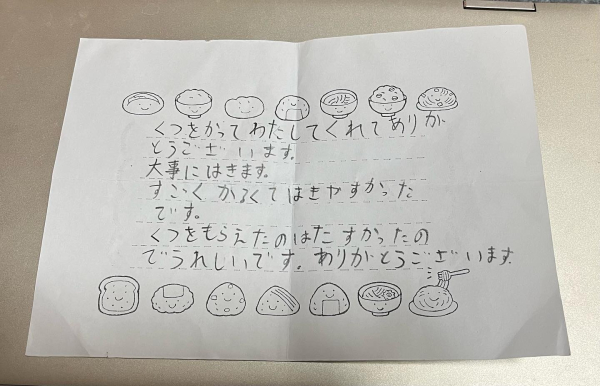 くつをかってわたしてくれてありが
とうございます。
大事にはきます。
すごくかるくてはきやすかった
です。
くつをもらえたのはたすかったの
でうれしいです。ありがとうございます